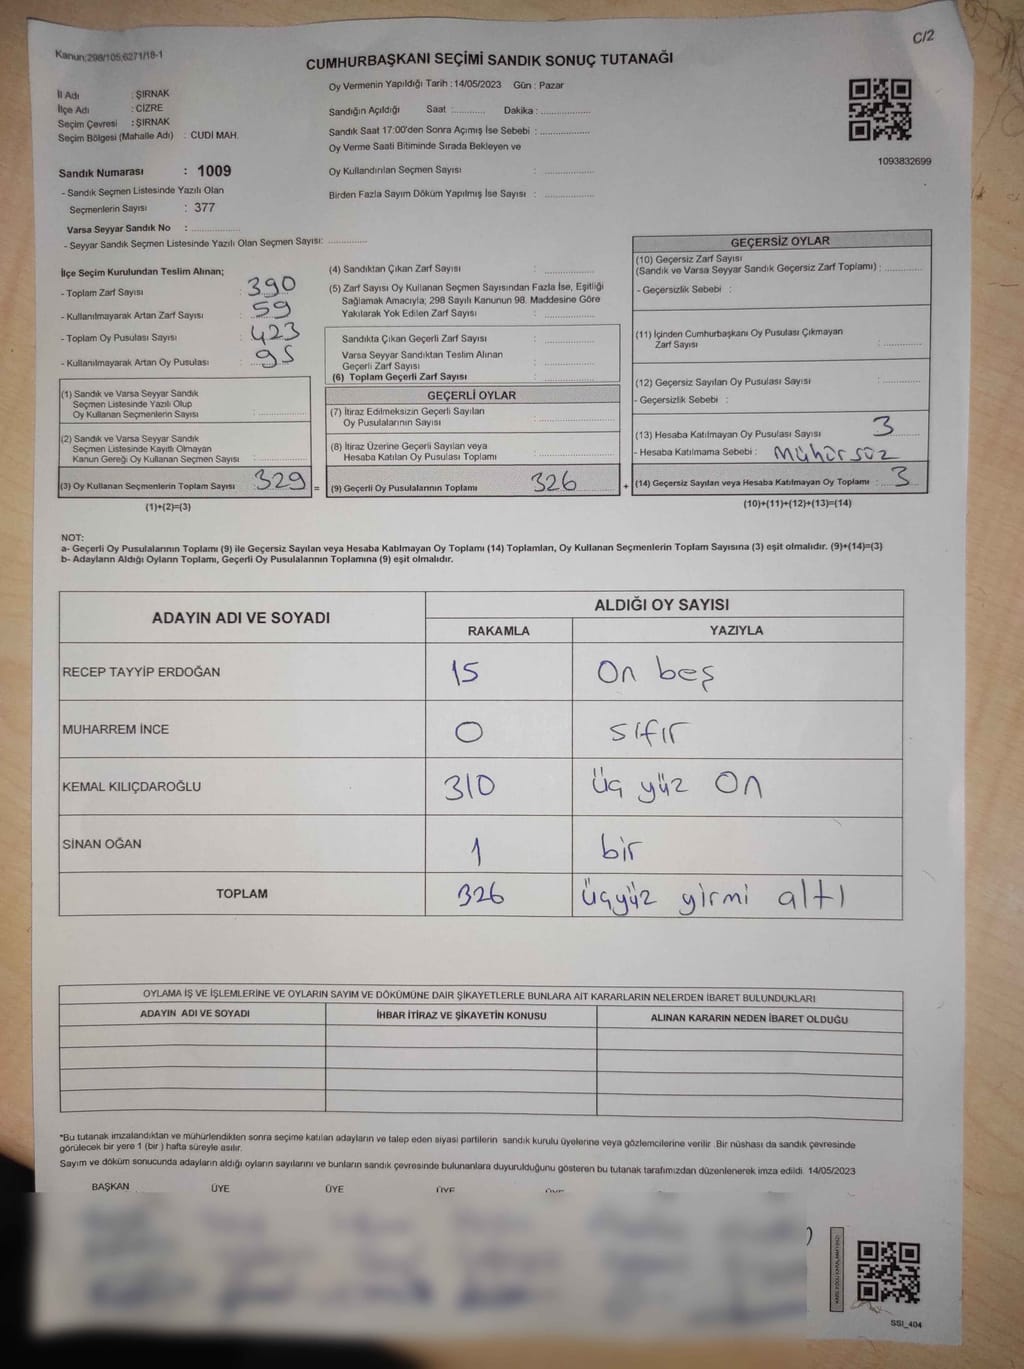 C/2
Kanun;298/105;6271/18-1
CUMHURBAŞKANI SEÇİMİ SANDIK SONUÇ TUTANAĞI
İl Adı : ŞIRNAK
İlçe Adı : CİZRE
Seçim Çevresi : ŞIRNAK
Seçim Bölgesi (Mahalle Adı) : CUDİ MAH.
Oy Vermenin Yapıldığı Tarih : 14/05/2023 Gün : Pazar
Sandığın Açıldığı Saat :.......... Dakika :................
Sandık Saat 17:00'den Sonra Açımış İse Sebebi :................
Oy Verme Saati Bitiminde Sırada Bekleyen ve
Oy Kullandırılan Seçmen Sayısı : ................
Birden Fazla Sayım Döküm Yapılmış İse Sayısı : ................
1093832699
Sandık Numarası : 1009
- Sandık Seçmen Listesinde Yazılı Olan
Seçmenlerin Sayısı : 377
Varsa Seyyar Sandık No : ................
- Seyyar Sandık Seçmen Listesinde Yazılı Olan Seçmen Sayısı: ............
İlçe Seçim Kurulundan Teslim Alınan;
- Toplam Zarf Sayısı : 390
- Kullanılmayarak Artan Zarf Sayısı : 59
- Toplam Oy Pusulası Sayısı : 423
- Kullanılmayarak Artan Oy Pusulası : 95
(1) Sandık ve Varsa Seyyar Sandık
Seçmen Listesinde Yazılı Olup
Oy Kullanan Seçmenlerin Sayısı : ................
(2) Sandık ve Varsa Seyyar Sandık
Seçmen Listesinde Kayıtlı Olmayan
Kanun Gereği Oy Kullanan Seçmen Sayısı : ................
(3) Oy Kullanan Seçmenlerin Toplam Sayısı : 329 =
(1)+(2)=(3)
(4) Sandıktan Çıkan Zarf Sayısı : ................
(5) Zarf Sayısı Oy Kullanan Seçmen Sayısından Fazla İse, Eşitliği
Sağlamak Amacıyla; 298 Sayılı Kanunun 98. Maddesine Göre
Yakılarak Yok Edilen Zarf Sayısı : ................
Sandıkta Çıkan Geçerli Zarf Sayısı : ................
Varsa Seyyar Sandıktan Teslim Alınan
Geçerli Zarf Sayısı : ................
(6) Toplam Geçerli Zarf Sayısı : ................
GEÇERLİ OYLAR
(7) İtiraz Edilmeksizin Geçerli Sayılan
Oy Pusulalarının Sayısı : ................
(8) İtiraz Üzerine Geçerli Sayılan veya
Hesaba Katılan Oy Pusulası Toplamı : ................
(9) Geçerli Oy Pusulalarının Toplamı : 326 +
GEÇERSİZ OYLAR
(10) Geçersiz Zarf Sayısı
(Sandık ve Varsa Seyyar Sandık Geçersiz Zarf Toplamı) : ............
- Geçersizlik Sebebi :
(11) İçinden Cumhurbaşkanı Oy Pusulası Çıkmayan
Zarf Sayısı : ............
(12) Geçersiz Sayılan Oy Pusulası Sayısı : ............
- Geçersizlik Sebebi :
(13) Hesaba Katılmayan Oy Pusulası Sayısı : 3
- Hesaba Katılmama Sebebi : Mühürsüz
(14) Geçersiz Sayılan veya Hesaba Katılmayan Oy Toplamı : 3
(10)+(11)+(12)+(13)=(14)
NOT:
a- Geçerli Oy Pusulalarının Toplamı (9) ile Geçersiz Sayılan veya Hesaba Katılmayan Oy Toplamı (14) Toplamları, Oy Kullanan Seçmenlerin Toplam Sayısına (3) eşit olmalıdır. (9)+(14)=(3)
b- Adayların Aldığı Oyların Toplamı, Geçerli Oy Pusulalarının Toplamına (9) eşit olmalıdır.
ADAYIN ADI VE SOYADI ALDIĞI OY SAYISI
RAKAMLA YAZIYLA
RECEP TAYYİP ERDOĞAN 15 On beş
MUHARREM İNCE 0 sıfır
KEMAL KILIÇDAROĞLU 310 üç yüz On
SİNAN OĞAN 1 bir
TOPLAM 326 üçyüz yirmi altı
OYLAMA İŞ VE İŞLEMLERİNE VE OYLARIN SAYIM VE DÖKÜMÜNE DAİR ŞİKAYETLERLE BUNLARA AİT KARARLARIN NELERDEN İBARET BULUNDUKLARI
ADAYIN ADI VE SOYADI İHBAR İTİRAZ VE ŞİKAYETİN KONUSU ALINAN KARARIN NEDEN İBARET OLDUĞU
*Bu tutanak imzalandıktan ve mühürlendikten sonra seçime katılan adayların ve talep eden siyasi partilerin sandık kurulu üyelerine veya gözlemcilerine verilir. Bir nüshası da sandık çevresinde
görülecek bir yere 1 (bir ) hafta süreyle asılır.
Sayım ve döküm sonucunda adayların aldığı oyların sayılarını ve bunların sandık çevresinde bulunanlara duyurulduğunu gösteren bu tutanak tarafımızdan düzenlenerek imza edildi. 14/05/2023
BAŞKAN ÜYE ÜYE ÜYE
SSI_404